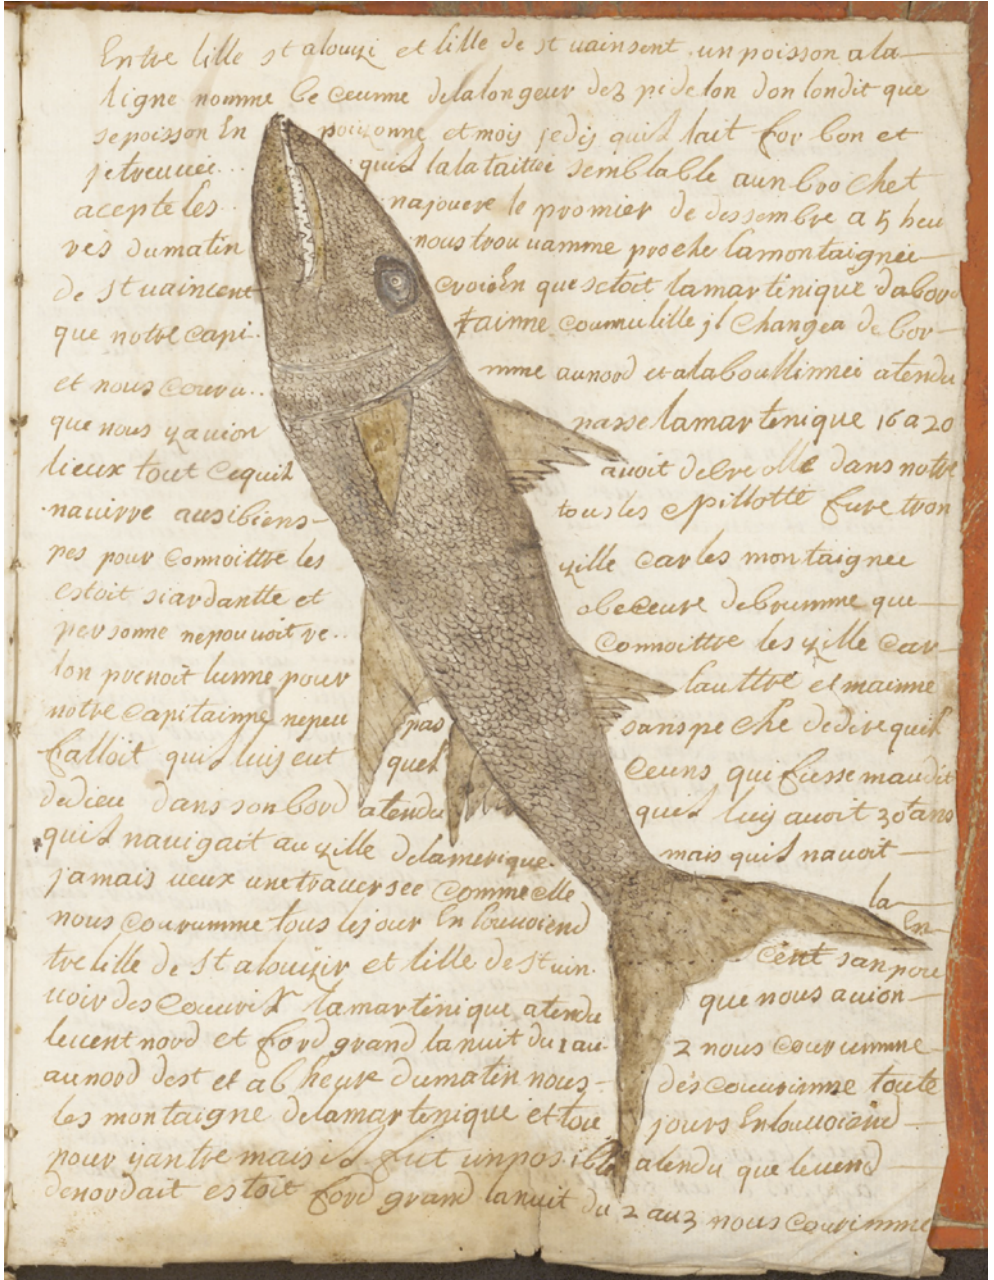 Entre lille st alouzi et lille de st vainsent un poisson a la
ligne nomme beceunne delalongeur de 3 pidelon don londit que
se poisson En poizonne et moy jedis quil lait for bon et
jetreuvee... quil lala taitte semblable aun boochet
acepteles najouere le promier de dessembre a 5 heu
res dumatin nous trouvamme proche lamontaignee
de st vaincent croioEn quesetoit lamartinique dabord
que notre capi.. tainne coumulille jl changea de bor
et nous couru.. mme aunord et alaboullinnei atendu
que nous y avion passe lamartinique 16 a 20
lieux tout cequil avoit de dans notre
navirre ausibiens tous les pillotte fure tron
pes pour connoittre les yille car les montaignee
estoit siardantte et obeceure debrumme que
personne nepouvoit re.. connoittre les yille car
lon prenoit lunne pour lauttre et mainne
notre capitainne nepeu pas sanspeche dedire quil
falloit quil luy eut quel ceuns qui fusse maudit
dedieu dans son bord atendu quil luy avoit 30 ans
quil navigait au yille delamerique. mais quil navoit
jamais veux une traversee comme elle la
nous courumme tous lejour En louvoiend En
tre lille de st alouizir et lille de st vin. cent sanpou
voir descoeuvrir lamartinique atendu que nous avion
levent nord et ford grand lanuit du 1 au 2 nous courumme
aunord dest et a 6 heure dumatin nous descoeuvrimme toute
les montaigne delamartinique et tou jours Enlouvoiend
pour yantre mais il fut unposible atendu que levend
denordait estoit ford grand lanuit du 2 au 3 nous courimme